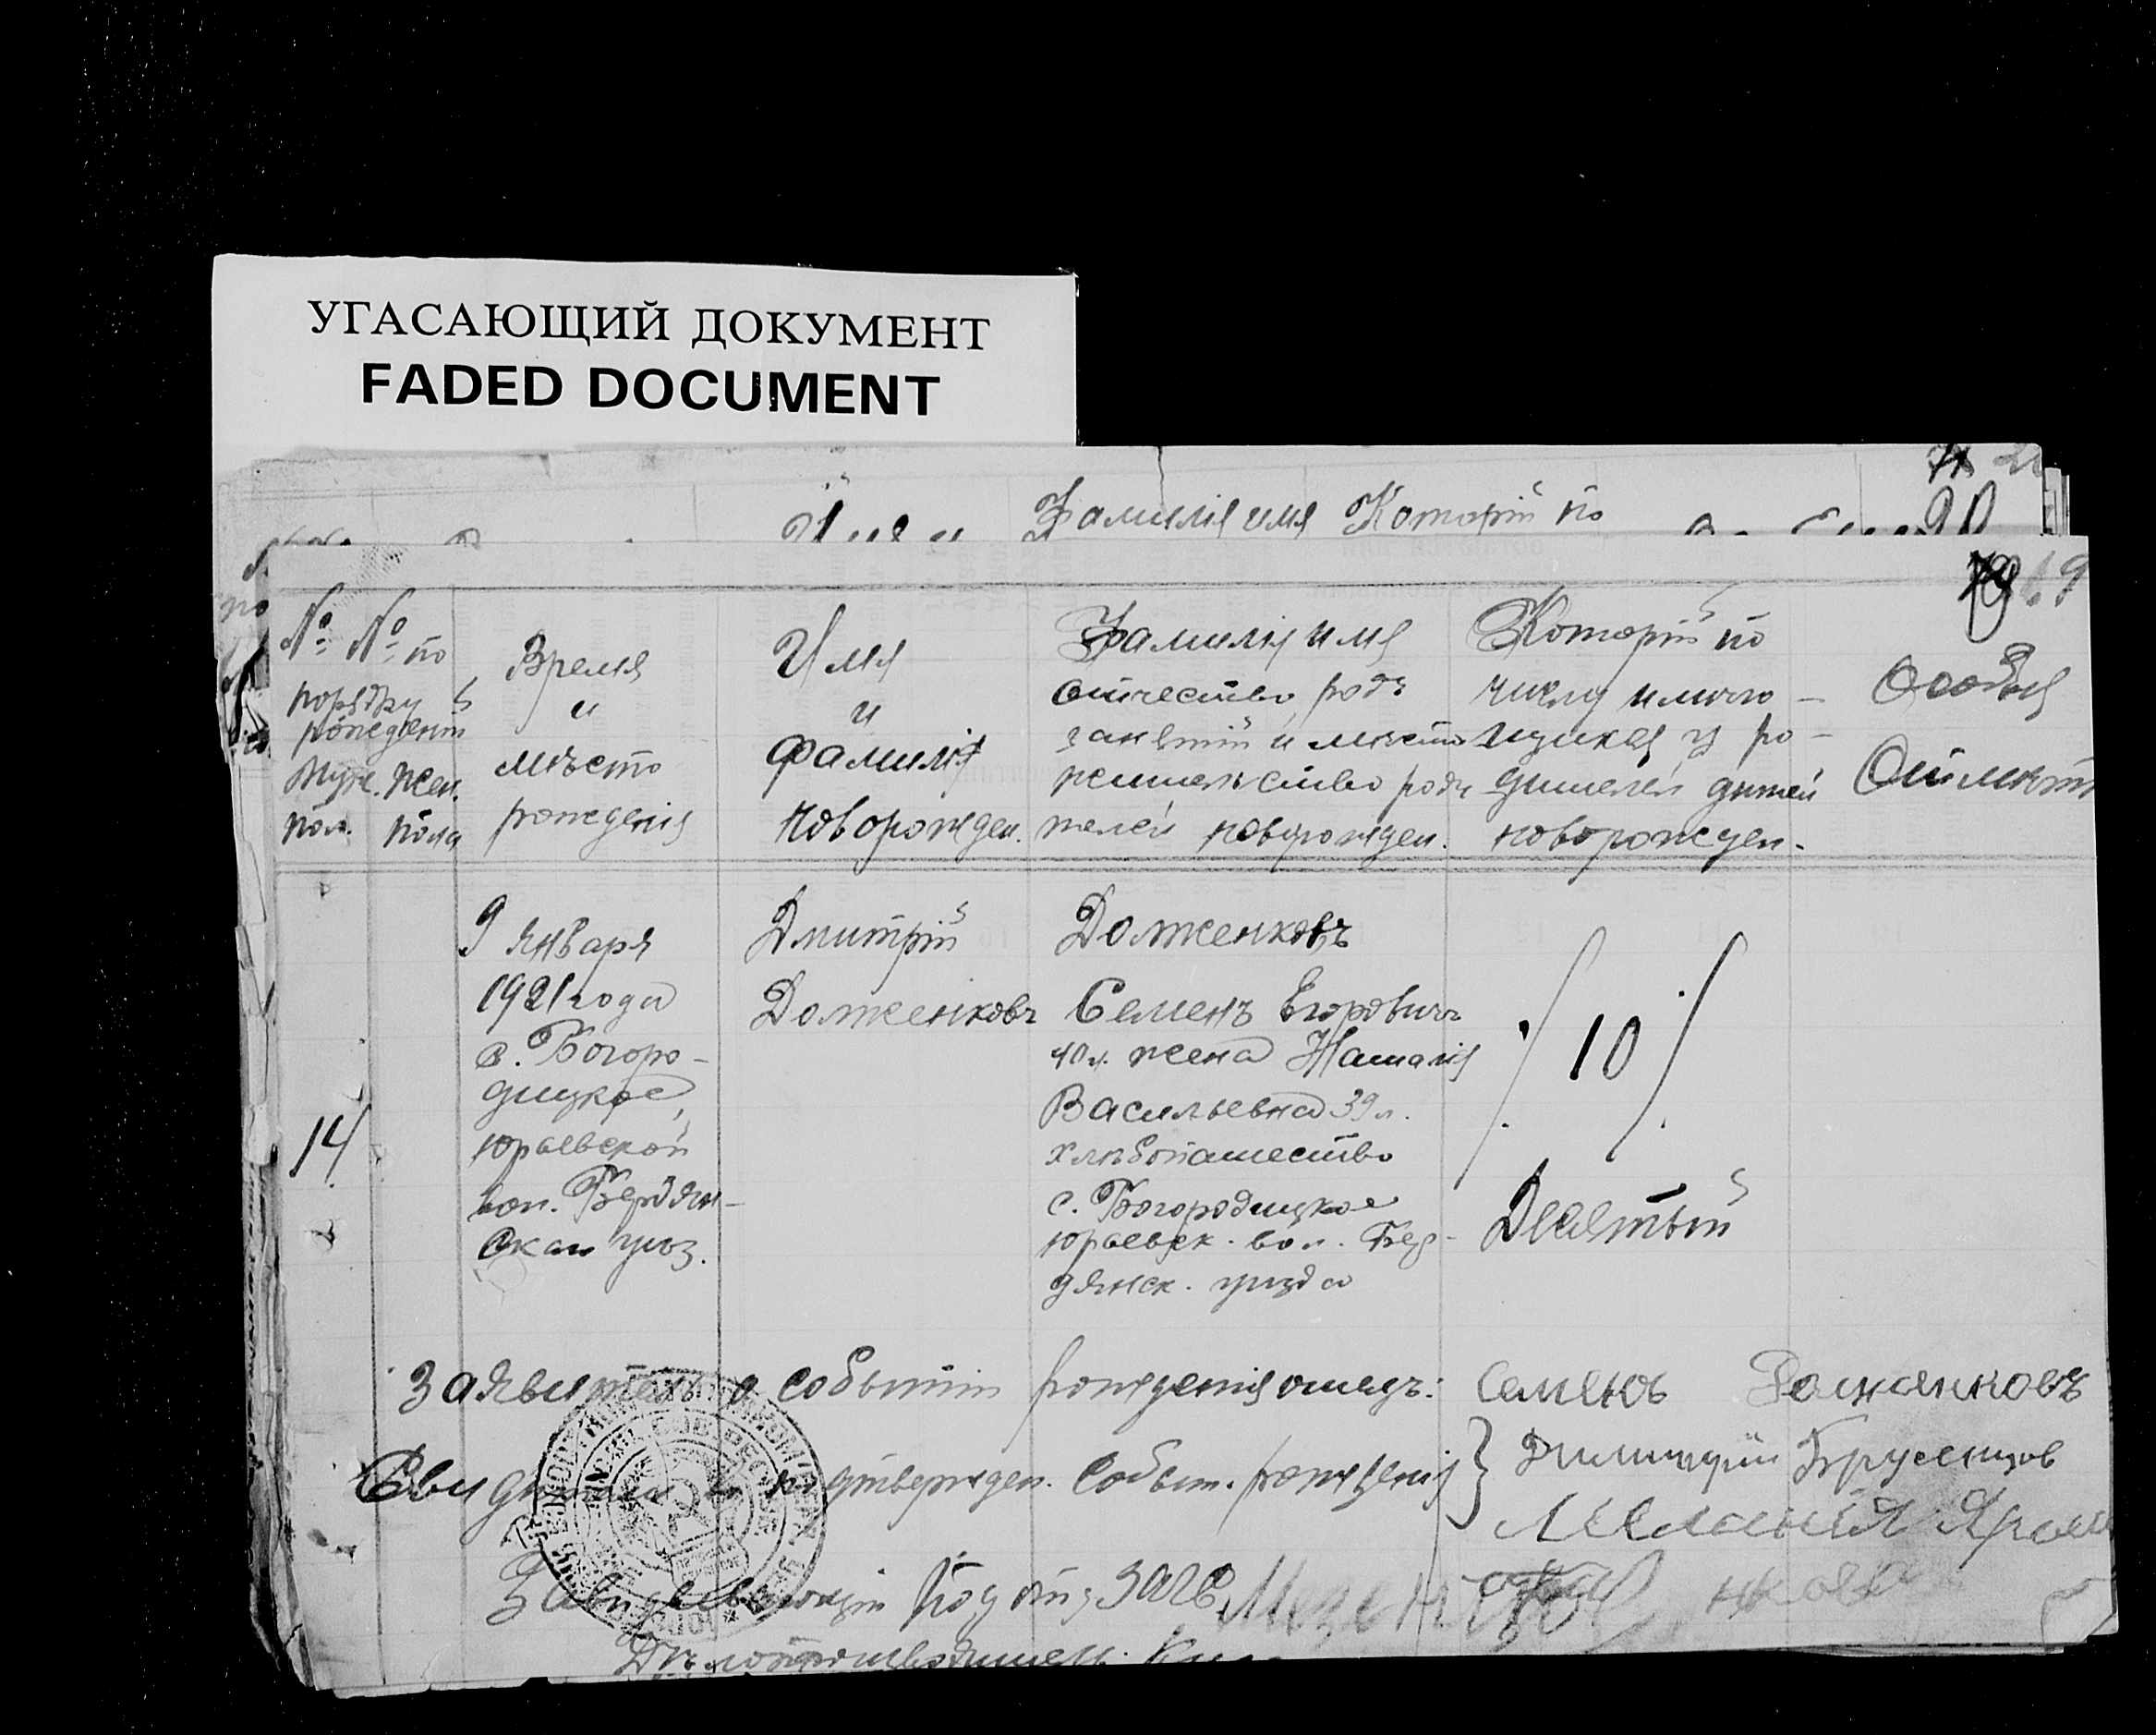 УГАСАЮЩИЙ ДОКУМЕНТ
FADED DOCUMENT
Фамилія имя Которій по
90
№ № по
порядку
рожденій
Муж. Жен.
пол. пола
Время
и
мѣсто
рожденія
Имя
и
фамилія
новорожден.
Фамилія имя
отчество, родъ
занятій и место
жительство роди
телей новорожден.
Которій по
числу имъю–
щихся у ро–
дителей дитей
новорожден.
Особыя
Отмѣт
14
9 января
1921 года
с. Богоро–
дицкое,
Юрьевской
вол. Бердян–
скаго уѣз.
Дмитрій
Долженковъ
Долженковъ
Семенъ Егоровичъ
40 л. жена Наталія
Васильевна 39 л.
хлѣбопашество
с. Богородицкое
Юрьевск. вол. Бер–
дянск. уѣзда
/10/
Десятый
Заявитель о событіи рожденія отецъ: Семенъ Долженковъ
Свидѣтели въ подтвержден. событ. рожденія } Димитрій Брусенцов
Завидывающій Подотд ЗАГС
Дѣлопроизводитель